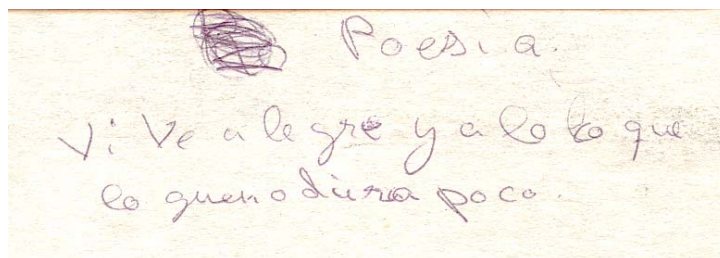 Poesia.
Vive alegre y a lo lo que
lo gueno dura poco.